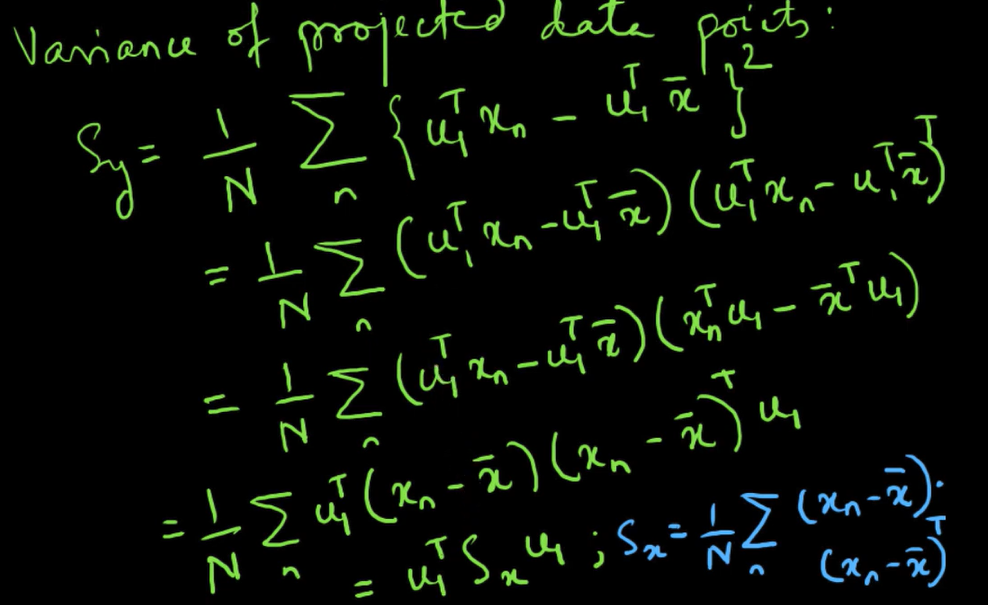 Variance of projected data points:
S_y = 1/N Σ_n { u₁ᵀ x_n − u₁ᵀ x̄ }²
= 1/N Σ_n (u₁ᵀ x_n − u₁ᵀ x̄) (u₁ᵀ x_n − u₁ᵀ x̄)ᵀ
= 1/N Σ_n (u₁ᵀ x_n − u₁ᵀ x̄) (x_nᵀ u₁ − x̄ᵀ u₁)
= 1/N Σ_n u₁ᵀ (x_n − x̄) (x_n − x̄)ᵀ u₁
= u₁ᵀ S_x u₁ ; S_x = 1/N Σ_n (x_n − x̄).
(x_n − x̄)ᵀ